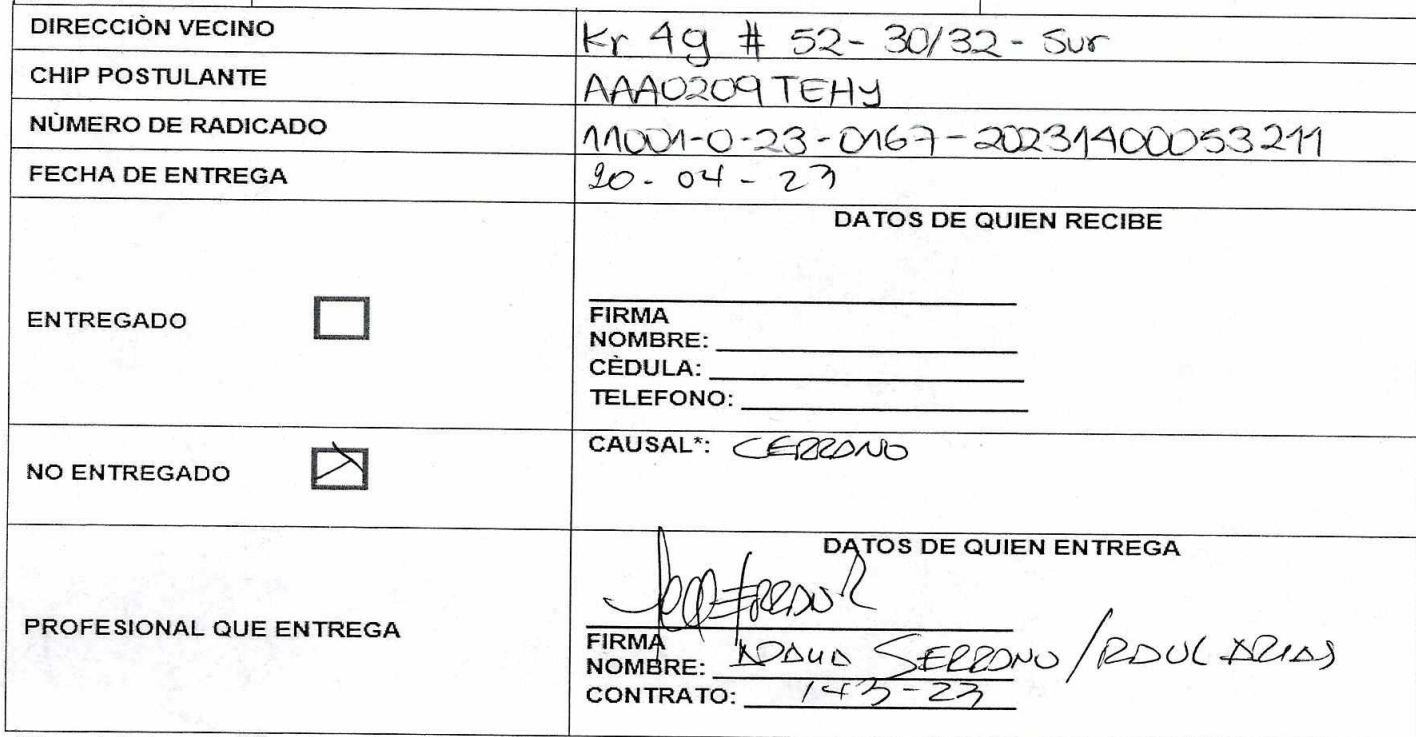 DIRECCIÒN VECINO Kr 49 # 52-30/32 - Sur
CHIP POSTULANTE AAA0209TEHY
NÙMERO DE RADICADO 11001-0-23-0167-20231400053211
FECHA DE ENTREGA 20-04-23
DATOS DE QUIEN RECIBE
ENTREGADO
FIRMA
NOMBRE:
CÈDULA:
TELEFONO:
NO ENTREGADO
CAUSAL*:
DATOS DE QUIEN ENTREGA
PROFESIONAL QUE ENTREGA
FIRMA
NOMBRE: SERRANO / RAUL ARIAS
CONTRATO: 143-23